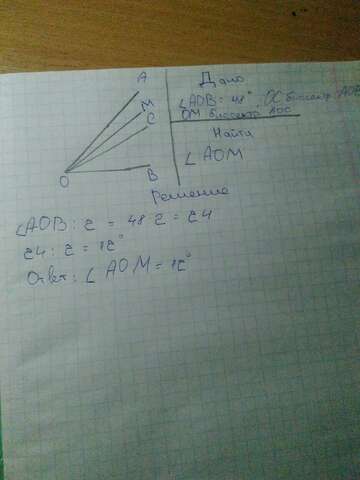 A
M
C
O
B
Дано
∠AOB = 48°, OC биссектр. AOB
OM биссектр. AOC
Найти
∠ AOM
Решение
∠AOB : 2 = 48 : 2 = 24
24 : 2 = 12°
Ответ: ∠ AOM = 12°